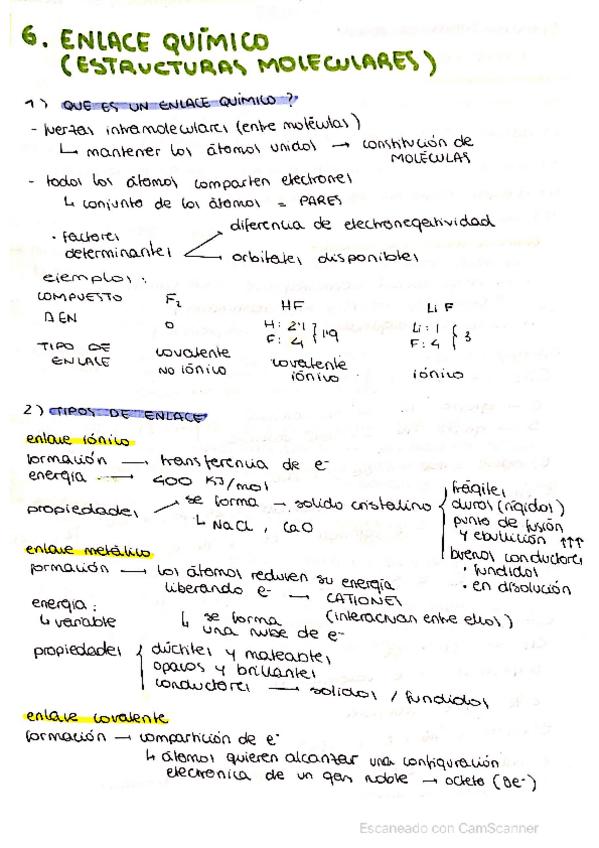 6. ENLACE QUÍMICO
(ESTRUCTURAS MOLECULARES)
1) QUE ES UN ENLACE QUÍMICO?
- fuerzas intramoleculares (entre moléculas)
↳ mantener los átomos unidos → constitución de
MOLÉCULAS
- todos los átomos comparten electrones
↳ conjunto de los átomos = PARES
· factores
determinantes
diferencia de electronegatividad
orbitales disponibles
ejemplos:
COMPUESTO F₂ HF LiF
Δ EN 0 H: 2'1 F: 4 } 1'9 Li: 1 F: 4 { 3
TIPO DE
ENLACE
covalente
NO IÓNICO
covalente
iónico
iónico
2) TIPOS DE ENLACE
enlace iónico
formación → transferencia de e⁻
energía → 400 KJ/mol
propiedades → se forma → solido cristalino
↳ NaCl, CaO
frágiles
duros (rígidos)
punto de fusión
y ebullición ↑↑↑
buenos conductores
· fundidos
· en disolución
enlace metálico
formación → los átomos reducen su energía
liberando e⁻ → CATIONES
(interactuan entre ellos)
energía:
↳ variable
↳ se forma
una nube de e⁻
propiedades
dúctiles y maleables
opacos y brillantes
conductores → solidos / fundidos
enlace covalente
formación → compartición de e⁻
↳ átomos quieren alcanzar una configuración
electronica de un gas noble → octeto (8e⁻)
Escaneado con CamScanner